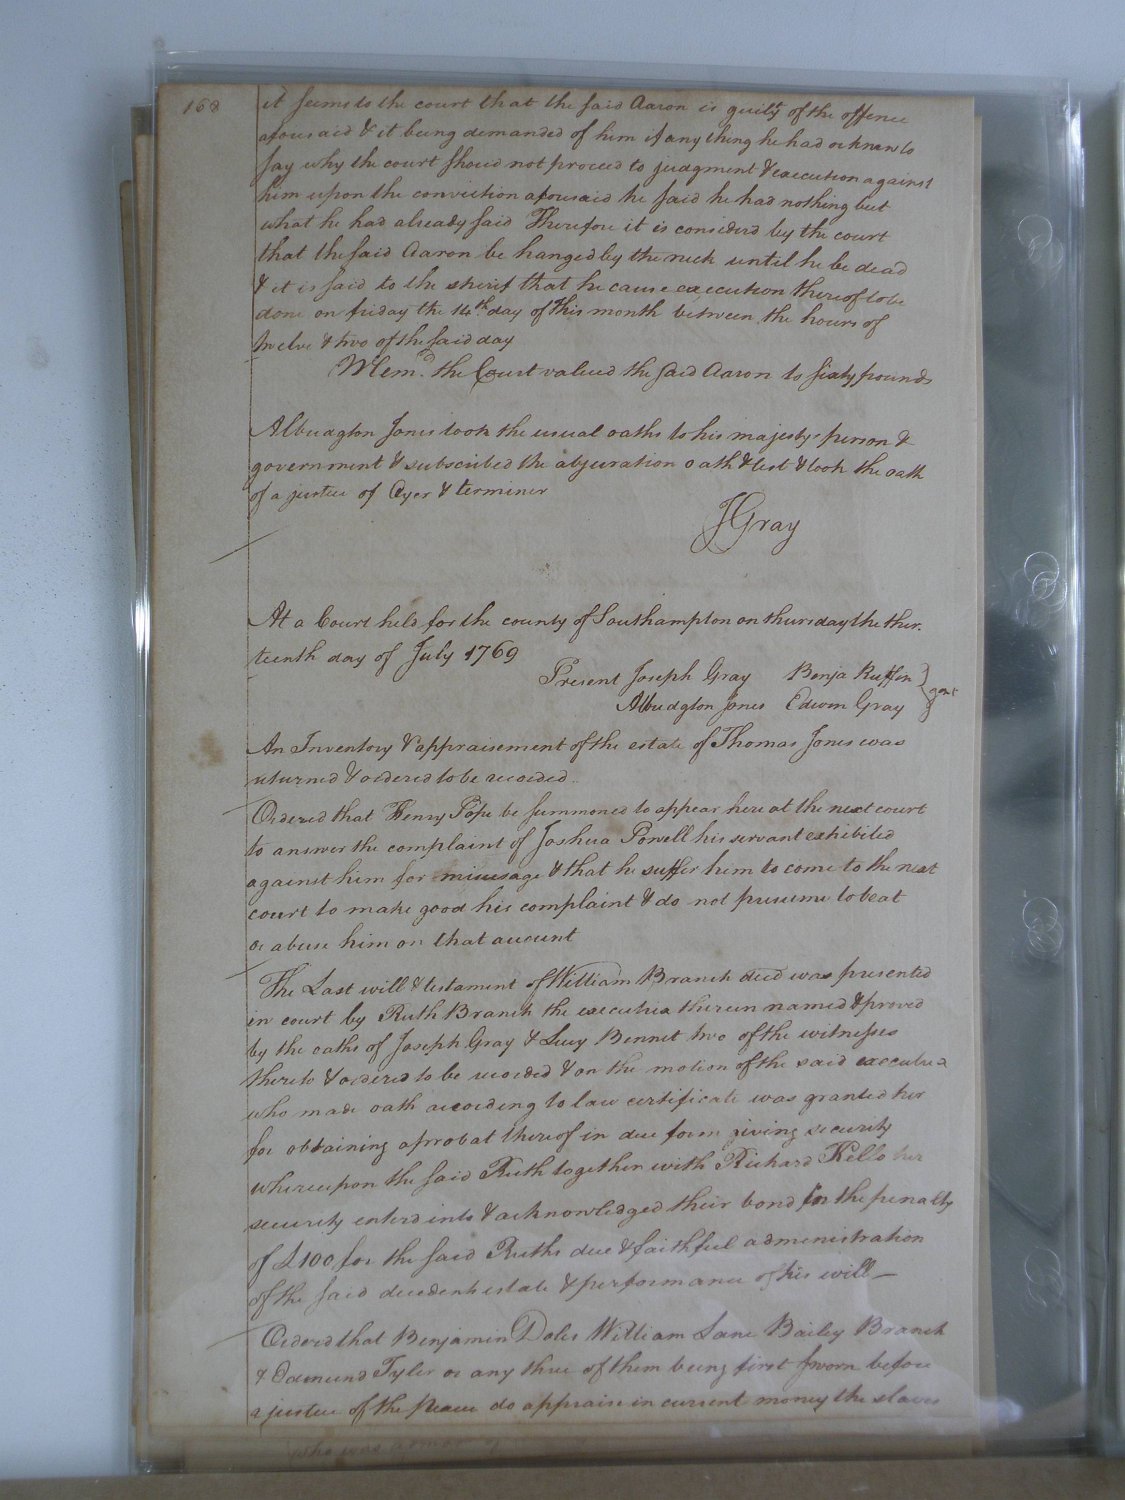 168
it seems to the court that the said Aaron is guilty of the offence
aforesaid & it being demanded of him if any thing he had or knew to
say why the court shoud not proceed to judgment & execution against
him upon the conviction aforesaid he said he had nothing but
what he had already said Therefore it is considerd by the court
that the said Aaron be hanged by the neck until he be dead
& it is said to the sherif that he cause execution thereof to be
done on friday the 14th day of this month between the hours of
twelve & two of the said day
Memd. the Court valued the said Aaron to sixty pounds
Albridgton Jones took the usual oaths to his majestys person &
government & subscribed the abjuration oath & test & took the oath
of a justice of Oyer & terminer
JGray
At a Court held for the county of Southampton on thursday the thir-
teenth day of July 1769
Present Joseph Gray Benja Ruffin } gent
Albridgton Jones Edwin Gray
An Inventory & appraisement of the estate of Thomas Jones was
returned & ordered to be recorded
Ordered that Henry Pope be summoned to appear here at the next court
to answer the complaint of Joshua Powell his servant exhibited
against him for misusage & that he suffer him to come to the next
court to make good his complaint & do not presume to beat
or abuse him on that account
The Last will & testament of William Branch decd was presented
in court by Ruth Branch the executrix therein named & proved
by the oaths of Joseph Gray & Lucy Bennet two of the witnesses
thereto & ordered to be recorded & on the motion of the said executrix
who made oath according to law certificate was granted her
for obtaining a probat thereof in due form giving security
whereupon the said Ruth together with Richard Kello her
security enterd into & acknowledged their bond in the penalty
of £100 for the said Ruths due & faithful administration
of the said decedents estate & performance of his will—
Orderd that Benjamin Doles William Lane Bailey Branch
& Edmund Tyler or any three of them being first sworn before
a justice of the peace do appraise in current money the slaves
who was a man of